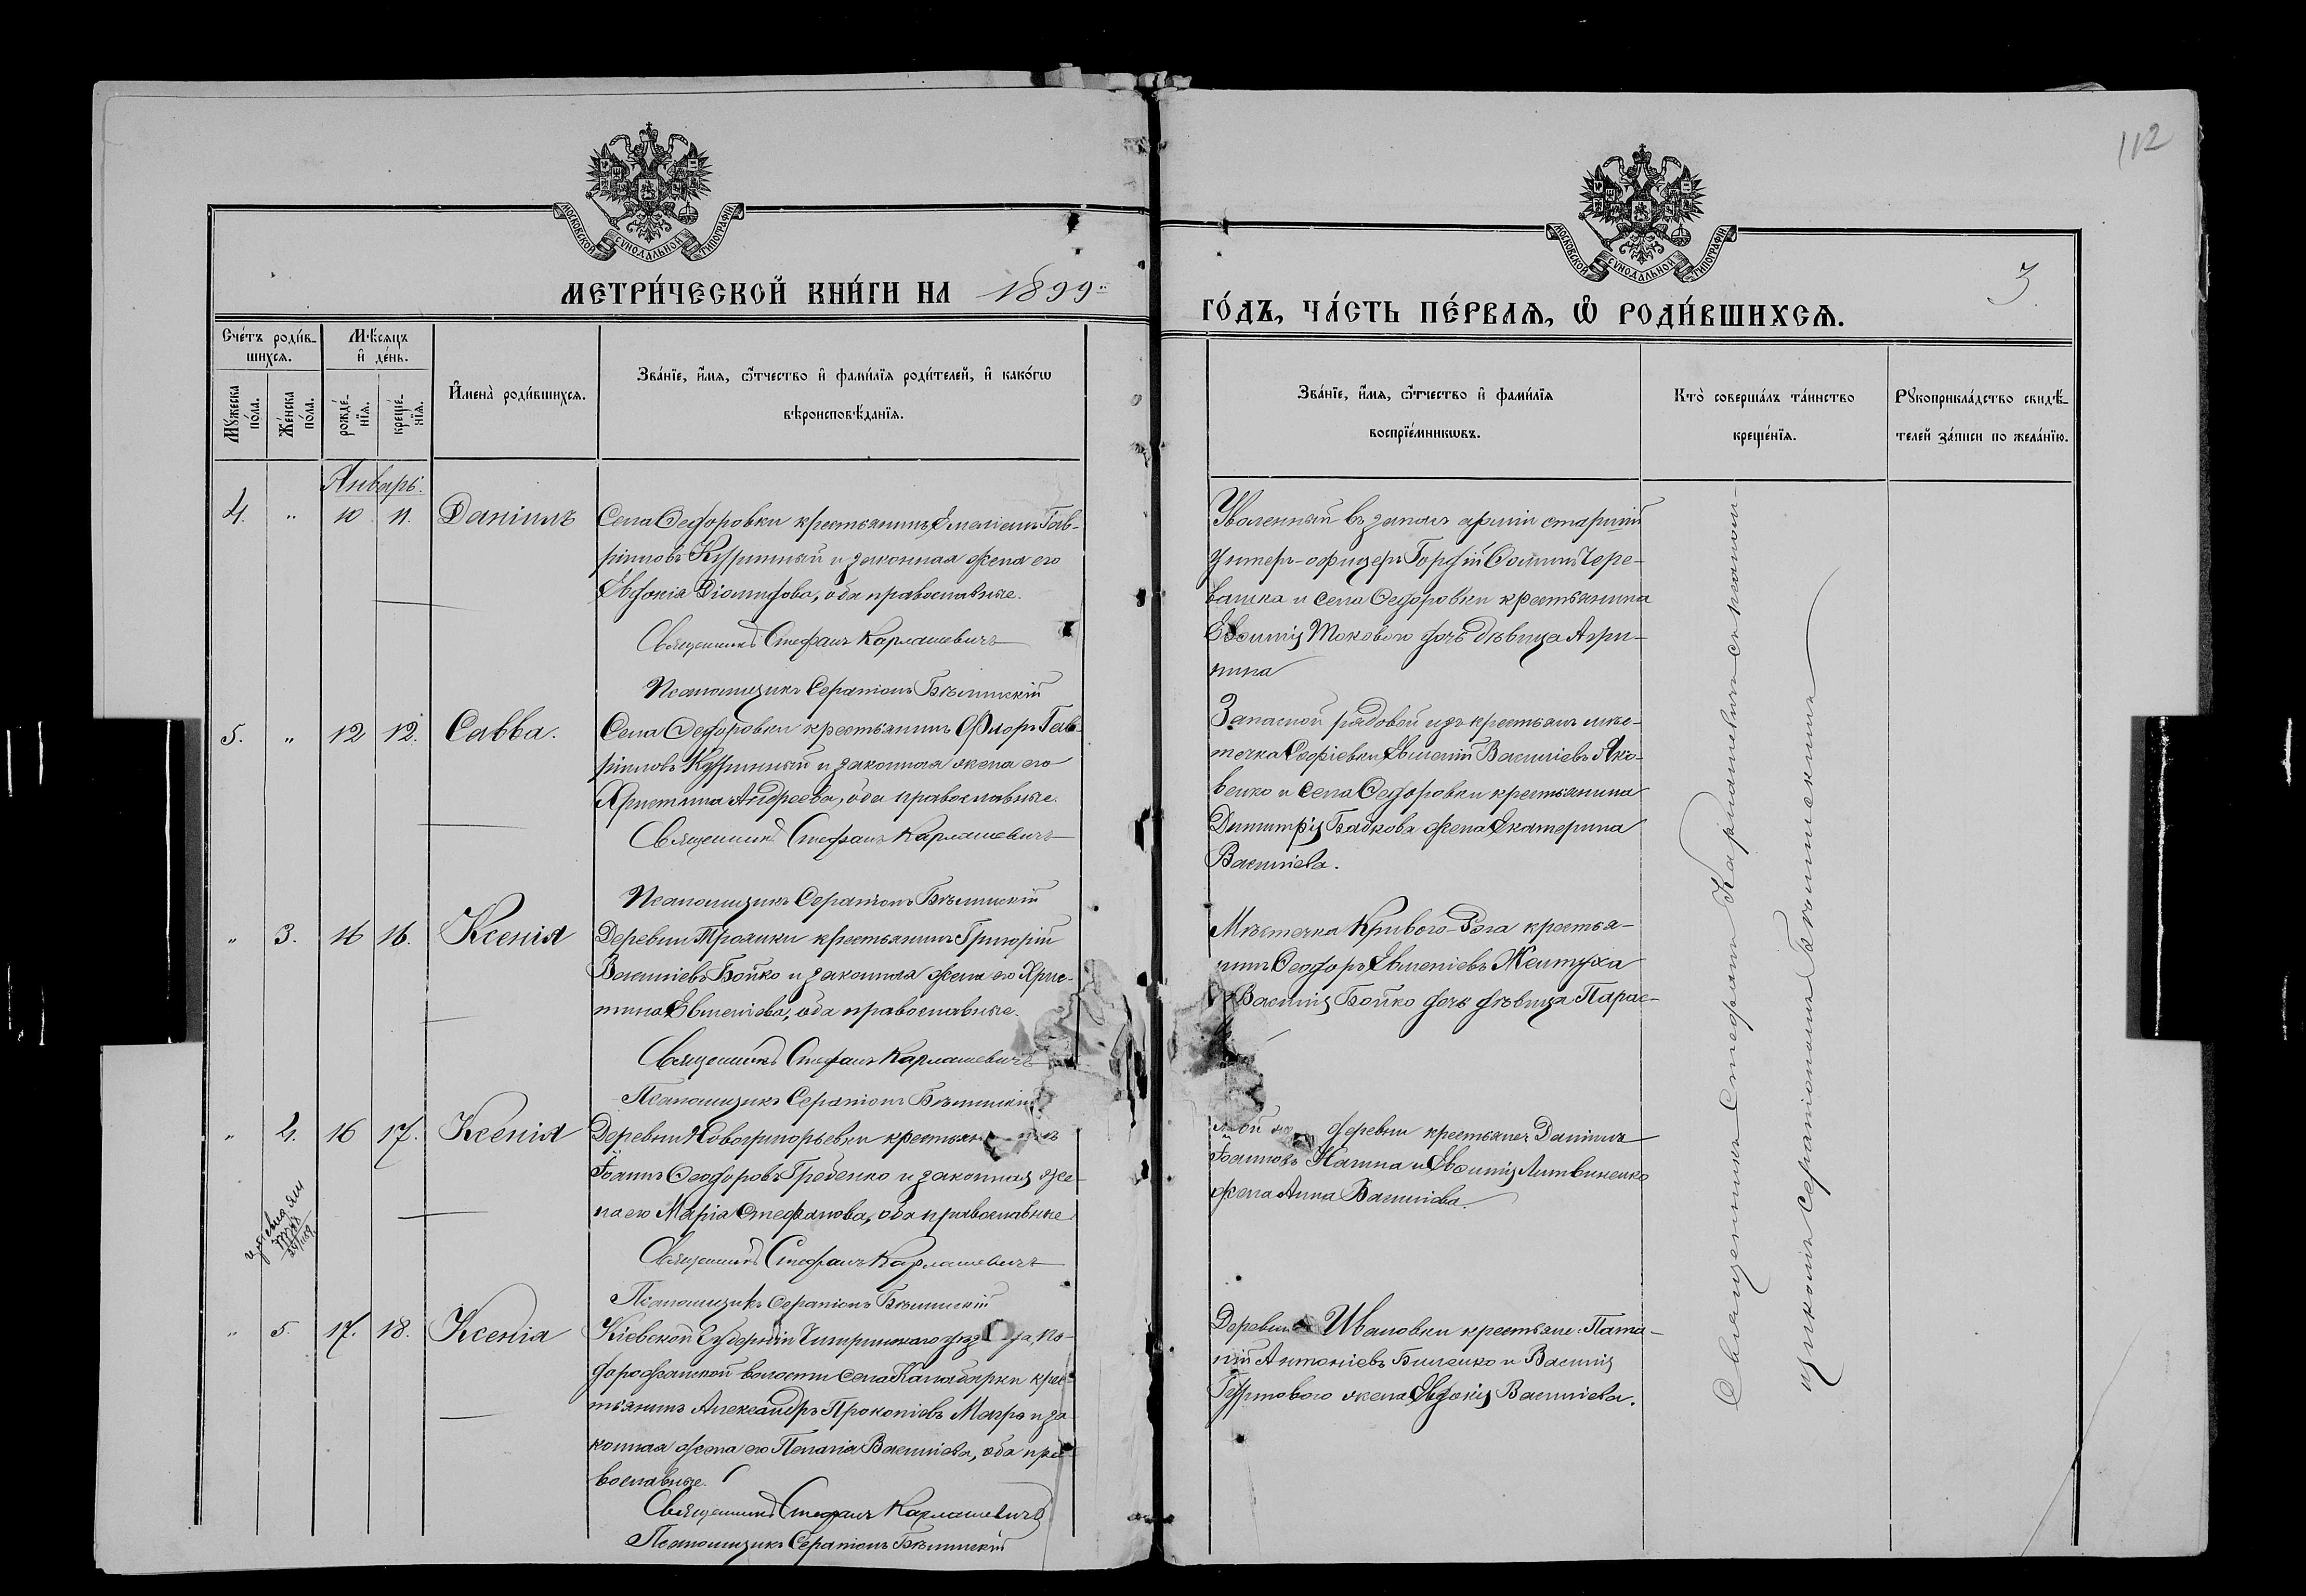 112
МОСКОВСКОЙ СѴНОДАЛЬНОЙ ТИПОГРАФІИ
МОСКОВСКОЙ СѴНОДАЛЬНОЙ ТИПОГРАФІИ
МЕТРИ́ЧЕСКОЙ КНИ́ГИ НА 1899
ГО́ДЪ, ЧА́СТЬ ПЕ́РВАѦ, Ѡ҆ РОДИ́ВШИХСѦ.
3
Сче́тъ роди́в-
шихсѧ.
Мꙋ́жеска по́ла.
Же́нска по́ла.
Мѣ́сѧцъ
и҆ де́нь.
рожде́-
нїѧ.
креще́-
нїѧ.
И҆мена̀ роди́вшихсѧ.
Зва́нїе, и҆́мѧ, ѻ҆́тчество и҆ фами́лїѧ роди́телей, и҆ како́гѡ
вѣроисповѣ́данїѧ.
Зва́нїе, и҆́мѧ, ѻ҆́тчество и҆ фами́лїѧ
воспрїе́мникѡвъ.
Кто̀ соверша́лъ та́инство
креще́нїѧ.
Рꙋкоприкла́дство свидѣ́-
телей за́писи по жела́нїю.
Январь.
4. " 10 11. Даніилъ
Села Ѳедоровки крестьянинъ Емеліанъ Гав-
ріиловъ Куринный и законная жена его
Евдокія Діомидова, оба православные.
Священникъ Стефанъ Карлашевичъ
Псаломщикъ Серапіонъ Бѣлинскій
Уволенный въ запасъ арміи старшій
унтеръ-офицеръ Гордій Ѳоминъ Чере-
вашка и села Ѳедоровки крестьянина
Евѳимія Токового дочь дѣвица Агри-
пина
5. " 12 12. Савва.
Села Ѳедоровки крестьянинъ Флоръ Гав-
ріиловъ Куринный и законная жена его
Христина Андреева, оба православные.
Священникъ Стефанъ Карлашевичъ
Псаломщикъ Серапіонъ Бѣлинскій
Запасной рядовой изъ крестьянъ мѣс-
течка Софіевки Евгеній Васильевъ Яко-
венко и села Ѳедоровки крестьянина
Димитрія Бабкова жена Екатерина
Васильева.
" 3. 16 16. Ксенія
Деревни Трояики крестьянинъ Григорій
Васильевъ Бойко и законная жена его Хрис-
тина Евгеніева, оба православные.
Священникъ Стефанъ Карлашевичъ
Псаломщикъ Серапіонъ Бѣлинскій
Мѣстечка Кривого-Рога крестья-
нинъ Ѳеодоръ Евгеніевъ
Василія Бойко дочь дѣвица Парас-
" 4. 16 17. Ксенія
Деревни Новогригорьевки
Іоаннъ Ѳеодоровъ Гребенко и законная же-
на его Марія Стефанова, оба православные
Священникъ Стефанъ Карлашевичъ
Псаломщикъ Серапіонъ Бѣлинскій
деревни крестьяне: Даніилъ
Іоанновъ Капша и Евѳимія Литвиненко
жена Анна Васильева.
" 5. 17. 18. Ксенія
Кіевской Губерніи Чигиринскаго уѣзда,
волости села Калаборки крес-
тьянинъ Александръ Прокопіевъ и за-
конная жена его Пелагія Васильева, оба пра-
вославные.
Священникъ Стефанъ Карлашевичъ
Псаломщикъ Серапіонъ Бѣлинскій
Деревни Ивановки крестьяне: Пата-
пій Антоніевъ Биленко и Василія
Гуртового жена Евдокія Васильева.
Священникъ Стефанъ Карлашевичъ съ псалом-
щикомъ Серапіономъ Бѣлинскимъ